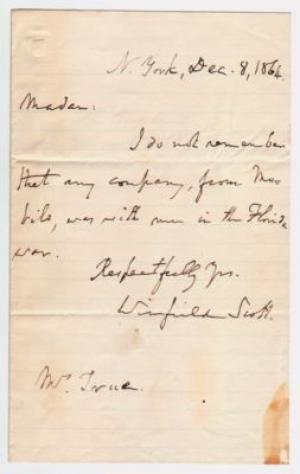 N. York, Dec. 8, 1864.
Madam:
I do not remember
that any company, from Mo
bile, was with me in the Florida
war.
Respectfully Yrs.
Winfield Scott.
Mrs. True.